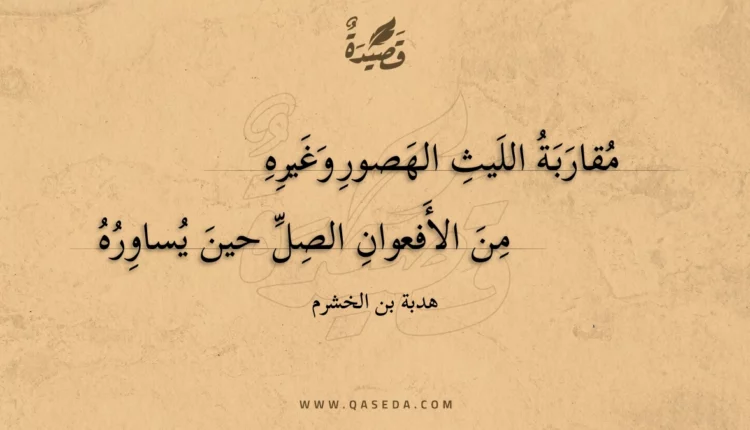 قَصِيْدَةٌ
مُقارَبَةُ اللَيثِ الهَصورِ وَغَيرِهِ
مِنَ الأَفعوانِ الصِلِّ حينَ يُساوِرُهُ
هدبة بن الخشرم
WWW.QASEDA.COM